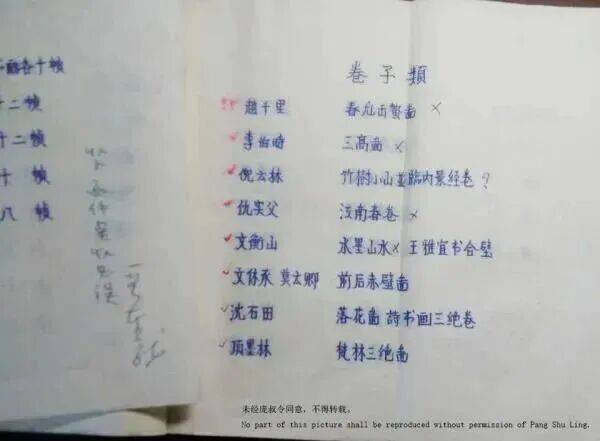 十二帧
十二帧
十 帧
八 帧
卷子類
趙千里 春龙出蟄啚 ×
李伯時 三高啚 ×
倪云林 竹樹小山並臨内景経卷 ?
仇实父 江南春卷 ×
文衡山 水墨山水× 王雅宜书合璧
文休承 莫云卿 前后赤壁啚
沈石田 落花啚 詩书画三绝卷
項墨林 梵林三绝啚
未经庞叔令同意，不得转载。
No part of this picture shall be reproduced without permission of Pang Shu Ling.